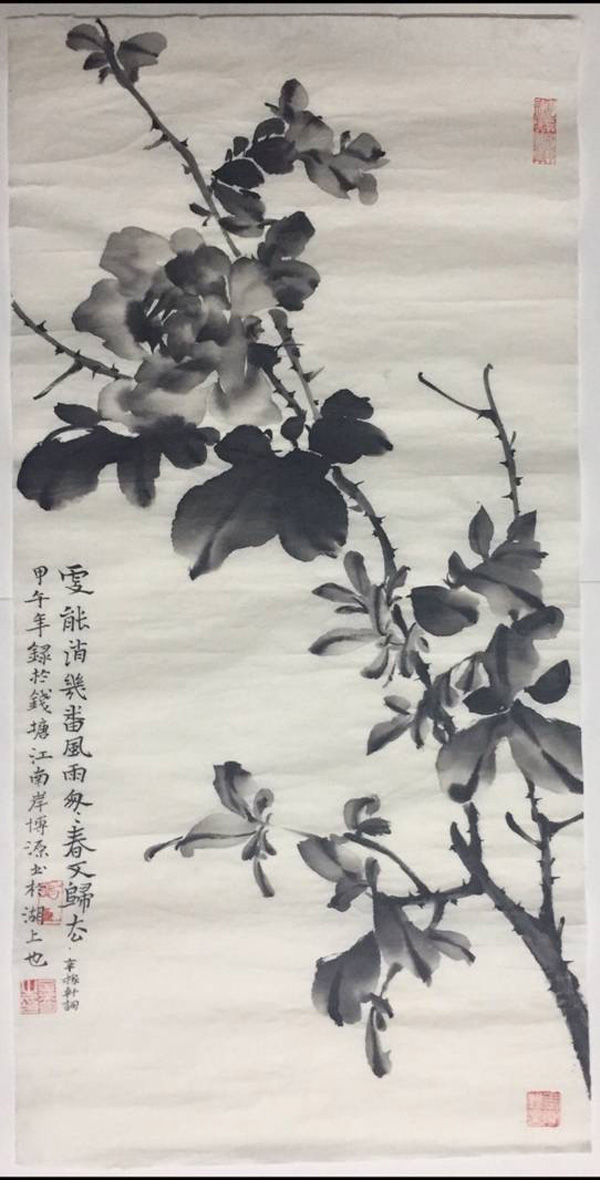 更能消幾番風雨匆〻春又歸去
辛稼軒詞
甲午年錄於錢塘江南岸博源書於湖上也